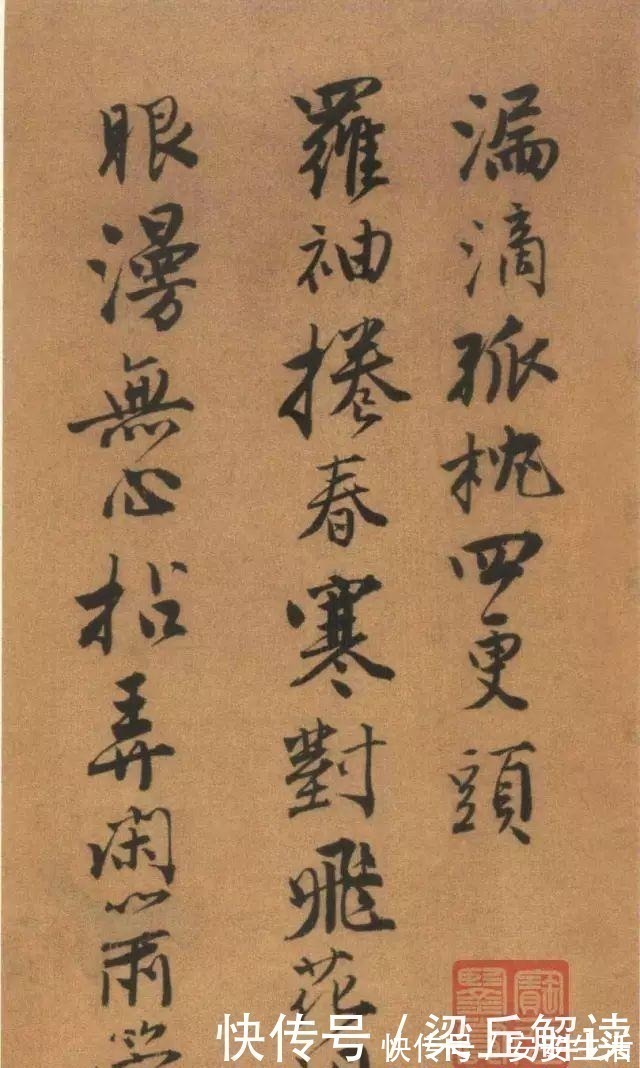 漏滴孤枕四更頭
羅袖捲春寒對飛花
眼漫無心拈弄閑
快传号 / 梁丘解读
快传号 /